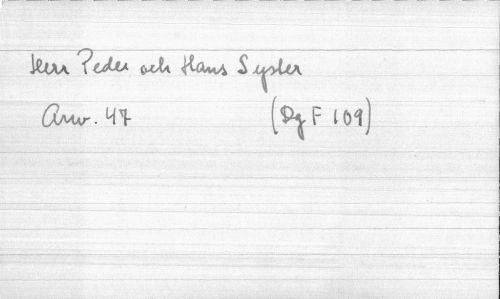 Herr Peder och Hans Syster
Arw. 47 (Dg F 109)